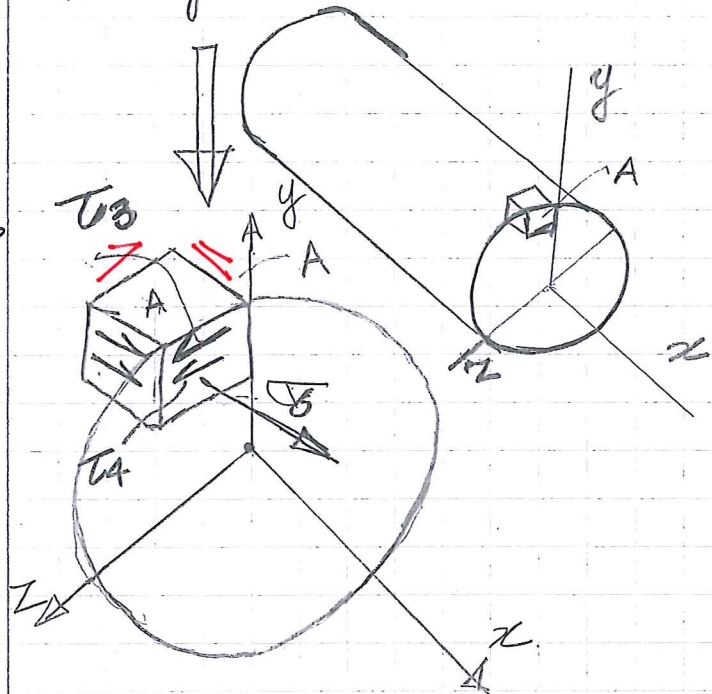 y
A
x
z
τ3
y
A
A
σb
τ4
z
x